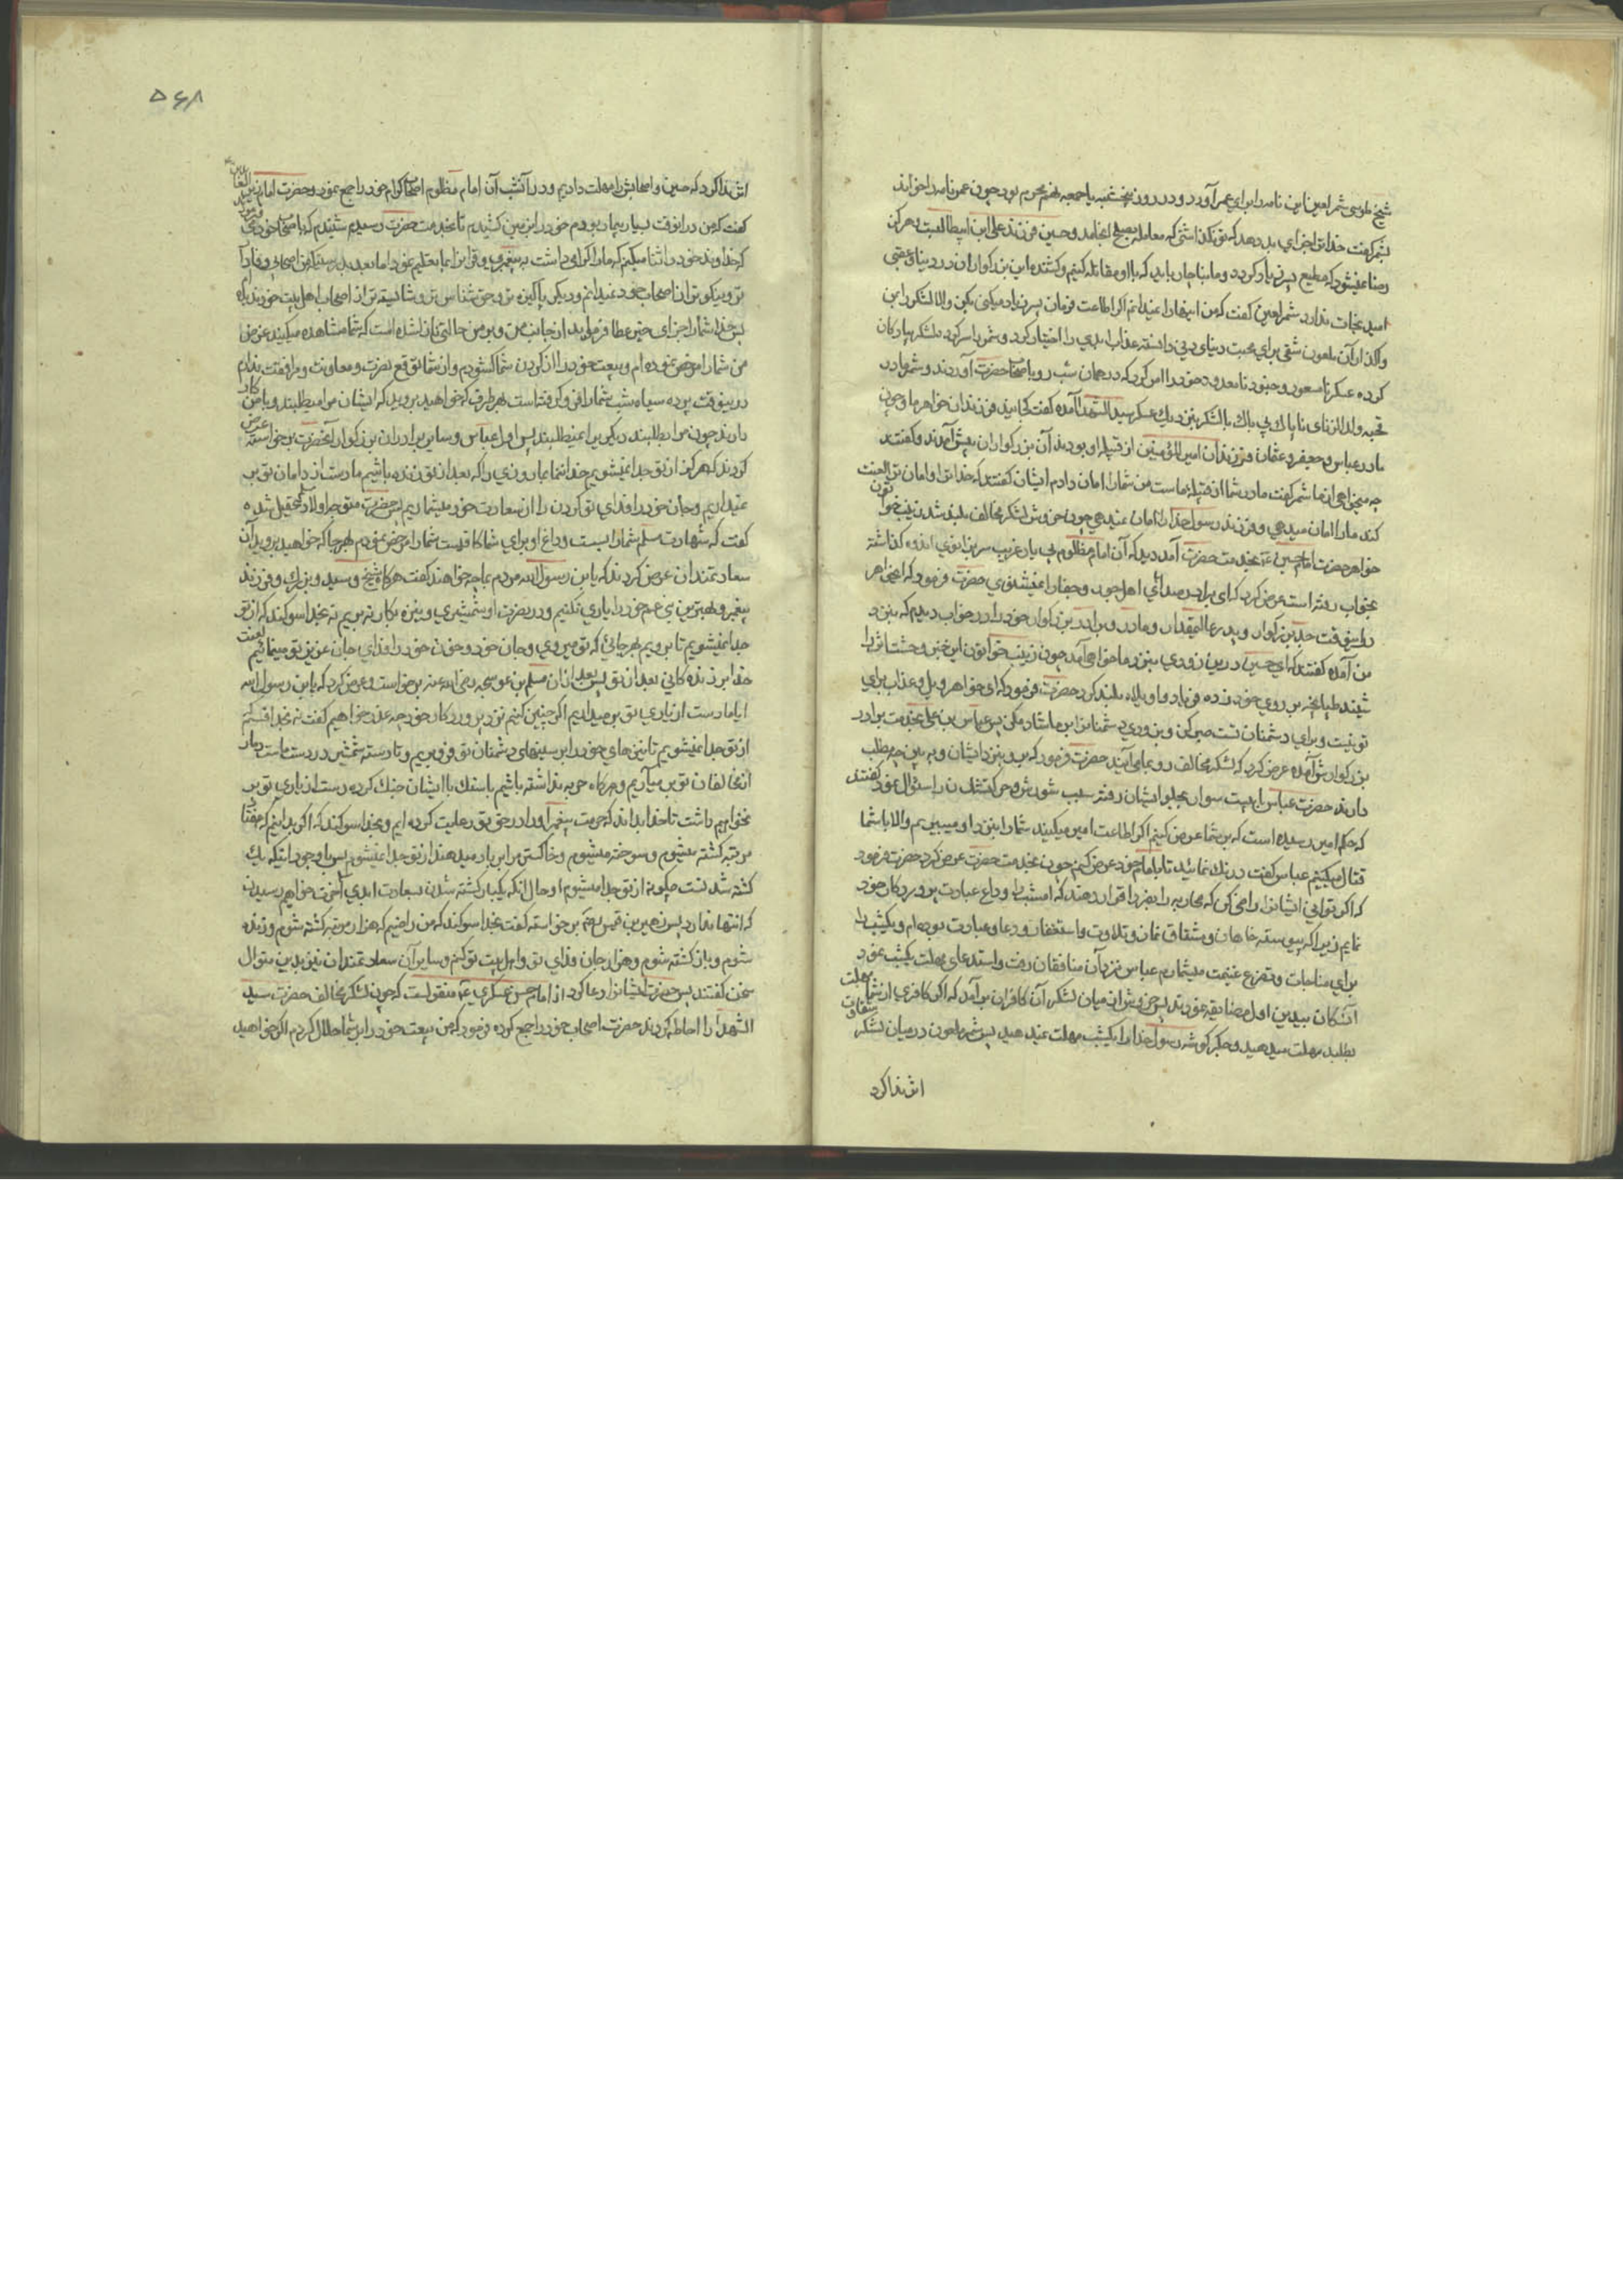 شیخ طوسی شمر لعین این نامه را برای عمر آورد و در روز پنجشنبه یا جمعه نهم محرم بود چون عمر نامه را خواند
بشمر گفت خدا ترا جزای بد دهد که نگذاشتی که معامله بصلح انجامد و حسین فرزند علی ابن ابیطالبست و هرگز
رضا نمیشود که مطیع پسر زیاد گردد و ما بناچار باید که با او مقاتله کنیم و کشنده این بزرگواران در دنیا و عقبی
امید نجات ندارد شمر لعین گفت که من اینها را نمیدانم اگر اطاعت فرمان پسر زیاد میکنی بکن والا لشکر را بمن
واگذار آن ملعون شقی برای محبت دنیای دنی دانسته عذاب ابدی را اختیار کرد و شمر را سرکرده لشکر پیادگان
کرده عسکر نامسعود و جنود نامعدود خود را امر کرد که در همان شب رو باصحاب حضرت آوردند و شمر مادر
قحبه ولد الزنای ناپاک بی باک با لشکر بنزدیک عسکر سید الشهدا آمده گفت کجایند فرزندان خواهر ما و چون
مادر عباس و جعفر و عثمان فرزندان امیر المؤمنین از قبیله او بودند آن بزرگواران پیش آمدند و گفتند
چه میخواهی از ما شمر گفت مادر شما از قبیله ماست من شما را امان دادم ایشان گفتند که خدا ترا و امان ترا لعنت
کند ما را امان میدهی و فرزند رسول خدا را امان نمیدهی چون خروش لشکر مخالف بلند شد زینب خواتون
خواهر حضرت امام حسین ع بخدمت حضرت آمد دید که آن امام مظلوم بی یار غریب سر بزانوی اندوه گذاشته
بخواب رفته است عرض کرد که ای برادر صدای اهل جور و جفا را نمیشنوی حضرت فرمود که ای خواهر
در اینوقت جد بزرگوار و پدر عالیمقدار و مادر و برادر بزرگوار خود را در خواب دیدم که بنزد
من آمده گفتند که ای حسین درین زودی بنزد ما خواهی آمد چون زینب خواتون این خبر وحشت اثر را
شنید طپانچه بر روی خود زده فریاد واویلاه بلند کرد حضرت فرمود که ای خواهر ویل و عذاب برای
تو نیست و برای دشمنان تست صبر کن و بزودی دشمنان را بر ما شاد مکن پس عباس بن علی بخدمت برادر
بزرگوارش آمده عرض کرد که لشکر مخالف رو بما می آیند حضرت فرمود که برو بنزد ایشان و به بین چه مطلب
دارند حضرت عباس با بیست سوار بجلو ایشان رفته سبب شورش و حرکت ایشان را سئوال نمود گفتند
که حکم امیر رسیده است که بر شما عرض کنیم اگر اطاعت امیر میکنید شما را بنزد او میبریم والا با شما
قتال میکنیم عباس گفت درنک نمائید تا با امام خود عرض کنم چون بخدمت حضرت عرض کرد حضرت فرمود
که اگر توانی ایشانرا راضی کن که محاربه را بفردا قرار دهند که امشب را وداع عبادت پروردگار خود
نمایم زیرا که پیوسته خواهان و مشتاق نماز و تلاوت و استغفار و دعا و عبادت بوده ام و یکشب را
برای مناجات و تضرع غنیمت میشمارم عباس نزد آن منافقان رفت و استدعای مهلت یکشب نمود
آن کافران بیدین اول مضایقه نمودند پس خروش از میان لشکر آن کافران برآمد که اگر کافری از شما مهلت
بطلبد مهلت میدهید و جگر گوشه رسول خدا را یکشب مهلت نمیدهید پس شمر ملعون در میان لشکر شقاوت
اثر ندا کرد
۵۶۸
اثر ندا کرد که حسین و اصحابش را مهلت دادیم و در آنشب آن امام مظلوم اصحاب کرام خود را جمع نمود و حضرت امام زین العابدین
گفت که من در آنوقت بسیار بیمار بودم خود را بر زمین کشیدم تا بخدمت حضرت رسیدم شنیدم که با اصحاب خود میفرمود
که خداوند خود را ثنا میکنم که ما را گرامی داشت به پیغمبری و قرآن را بما تعلیم نمود اما بعد بدرستیکه من اصحابی وفادار
تر و نیکوتر از اصحاب خود نمیدانم و دیگر پاکیزه تر و حق شناس تر و شایسته تر از اصحاب اهل بیت خود ندیده ام
پس خدا شما را جزای خیر عطا فرماید از جانب من و بر من حالتی نازل شده است که شما مشاهده میکنید عوض
من شما را مرخص نموده ام و بیعت خود را از گردن شما گشودم و از شما توقع نصرت و معاونت و مرافقت ندارم
درینوقت پرده سیاه شب شما را فرو گرفته است بهر طرف که خواهید بروید که ایشان مرا میطلبند و با من کار
دارند چون مرا بطلبند دیگری را نمیطلبند پس اول عباس و سایر برادران بزرگوار آنحضرت برخواسته عرض
کردند که هرگز از تو جدا نمیشویم خدا ننماید بما روزی را که بعد از تو زنده باشیم ما دست از دامان تو بر
نمیداریم و جان خود را فدای تو کردن را از سعادت خود میشماریم پس حضرت متوجه اولاد عقیل شده
گفت که شهادت مسلم شما را بس است و داغ او برای شما کافیست شما را مرخص نمودم بهر جا که خواهید بروید آن
سعادتمندان عرض کردند که یابن رسول الله مردم بما چه خواهند گفت هرگاه شیخ و سید و بزرگ و فرزند
پیغمبر و بهترین بنی عم خود را یاری نکنیم و در نصرت او شمشیری و نیزه بکار نبریم نه بخدا سوگند که از تو
جدا نمیشویم تا برویم بهر جائی که تو میروی و جان خود و خون خود را فدای جان عزیز تو مینمائیم لعنت
خدا بر زندگانی بعد از تو پس بعد از آن مسلم بن عوسجه رضی الله عنه برخواست و عرض کرد که یابن رسول الله
ایا ما دست از یاری تو برمیداریم اگر چنین کنیم نزد پروردگار خود چه عذر خواهیم گفت نه بخدا قسم که
از تو جدا نمیشویم تا نیزهای خود را بر سینهای دشمنان تو فرو بریم و تا دسته شمشیر در دست ماست دمار
از مخالفان تو بر میآریم و هرگاه حربه نداشته باشیم با سنک با ایشان جنک کرده دست از یاری تو بر
نخواهیم داشت تا خدا بداند که حرمت پیغمبر او را در حق تو رعایت کرده ایم و بخدا سوگند که اگر بدانیم که هفتاد
مرتبه کشته میشوم و سوخته میشوم و خاکستر مرا بر باد میدهند از تو جدا نمیشوم پس با وجود اینکه یک
کشته شدنست چگونه از تو جدا میشوم و حال آنکه یکبار کشته شدن سعادت ابدی آخرت خواهم رسید
که انتها ندارد پس زهیر بن قیس برخواسته گفت بخدا سوگند که من راضیم که هزار مرتبه کشته شوم و زنده
شوم و باز کشته شوم و هزار جان فدای تو و اهل بیت تو کنم و سایر آن سعادتمندان نیز بدین منوال
سخن گفتند پس حضرت ایشانرا دعا کرد از امام حسن عسکری ع منقولست که چون لشکر مخالف حضرت سید
الشهدا را احاطه کردند حضرت اصحاب خود را جمع کرده فرمود که من بیعت خود را بر شما حلال کردم اگر خواهید